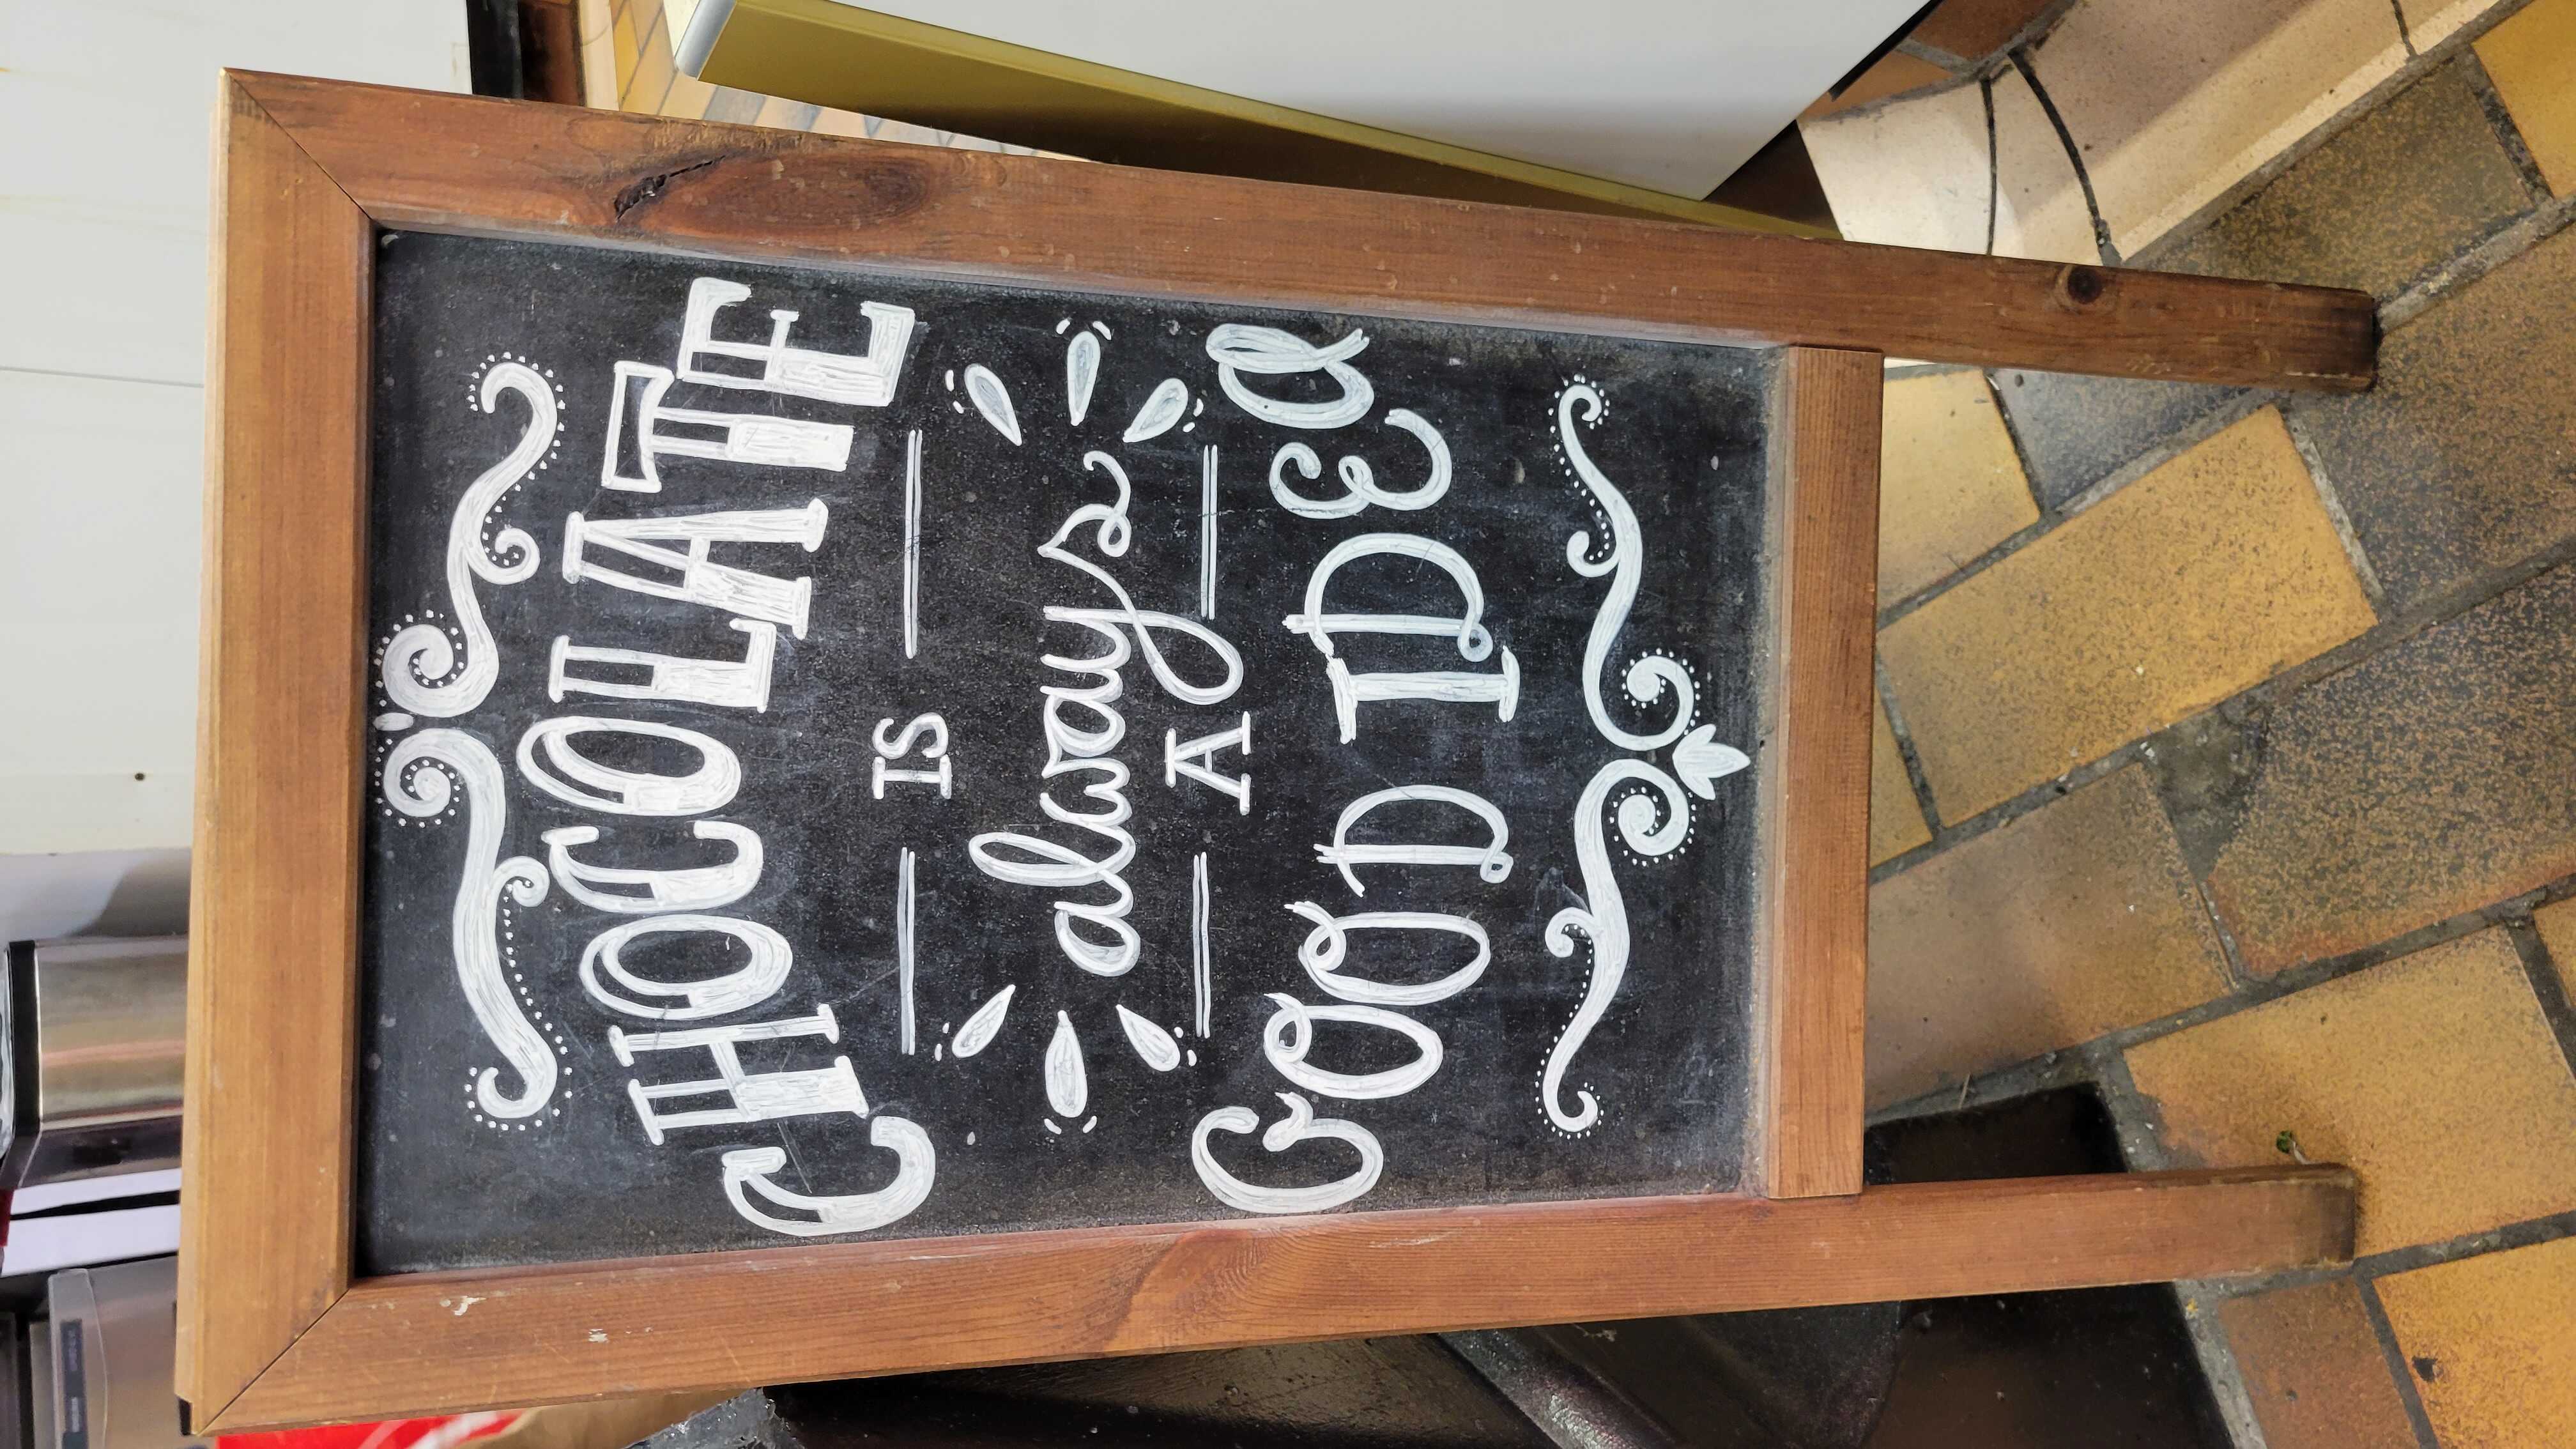 CHOCOLATE
IS
always
A
GOOD IDEA